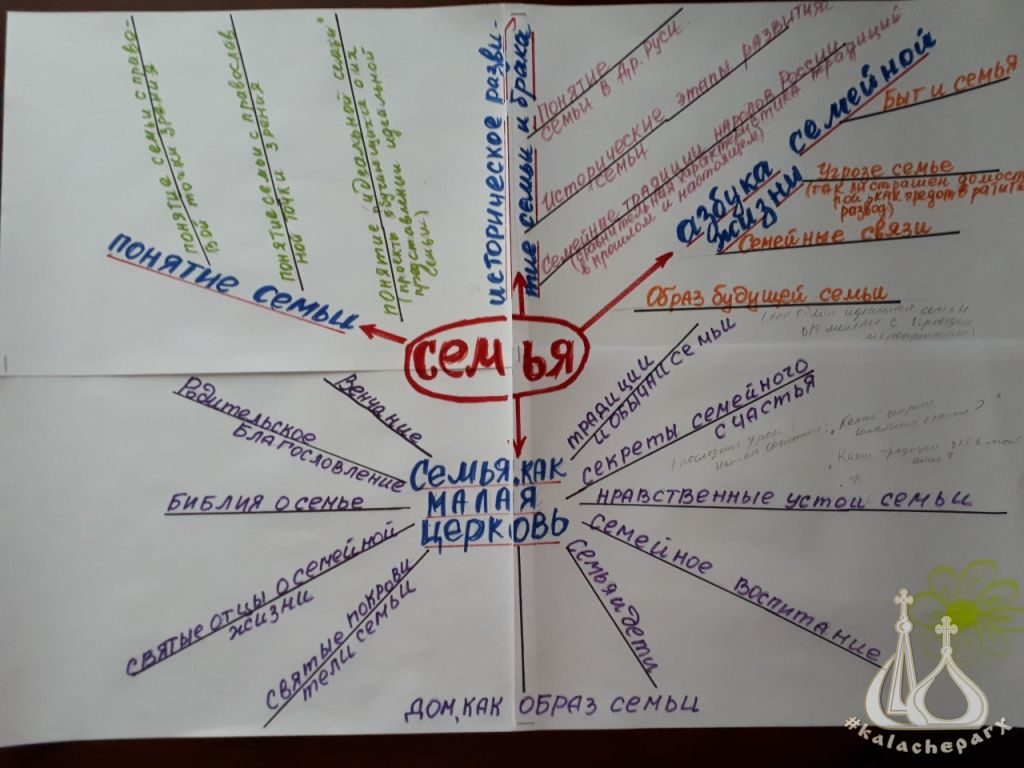 СЕМЬЯ
понятие семьи
понятие семьи с право-
вой точки зрения
понятие семьи с православ
ной точки зрения
понятие "идеальной семьи"
(проекты обучающихся о их
представлении идеальной
семьи)
историческое разви-
тие семьи и брака
Понятие
семьи в Др. Руси
Исторические этапы развития
семьи
Семейные традиции народов России
(сравнительная характеристика традиций
в прошлом и настоящем)
азбука семейной
жизни
Быт и семья
Угрозе семье
(так ли страшен домост
рой, как предотвратить
развод)
Семейные связи
Образ будущей семьи
Семья, как
малая
церковь
Венчание
Родительское
благословление
Библия о семье
Святые отцы о семейной
жизни
Святые покрови
тели семьи
Дом, как образ семьи
Семья и дети
Семейное воспитание
Нравственные устои семьи
Секреты семейного
счастья
традиции
и обычаи семьи
#kalacheparx